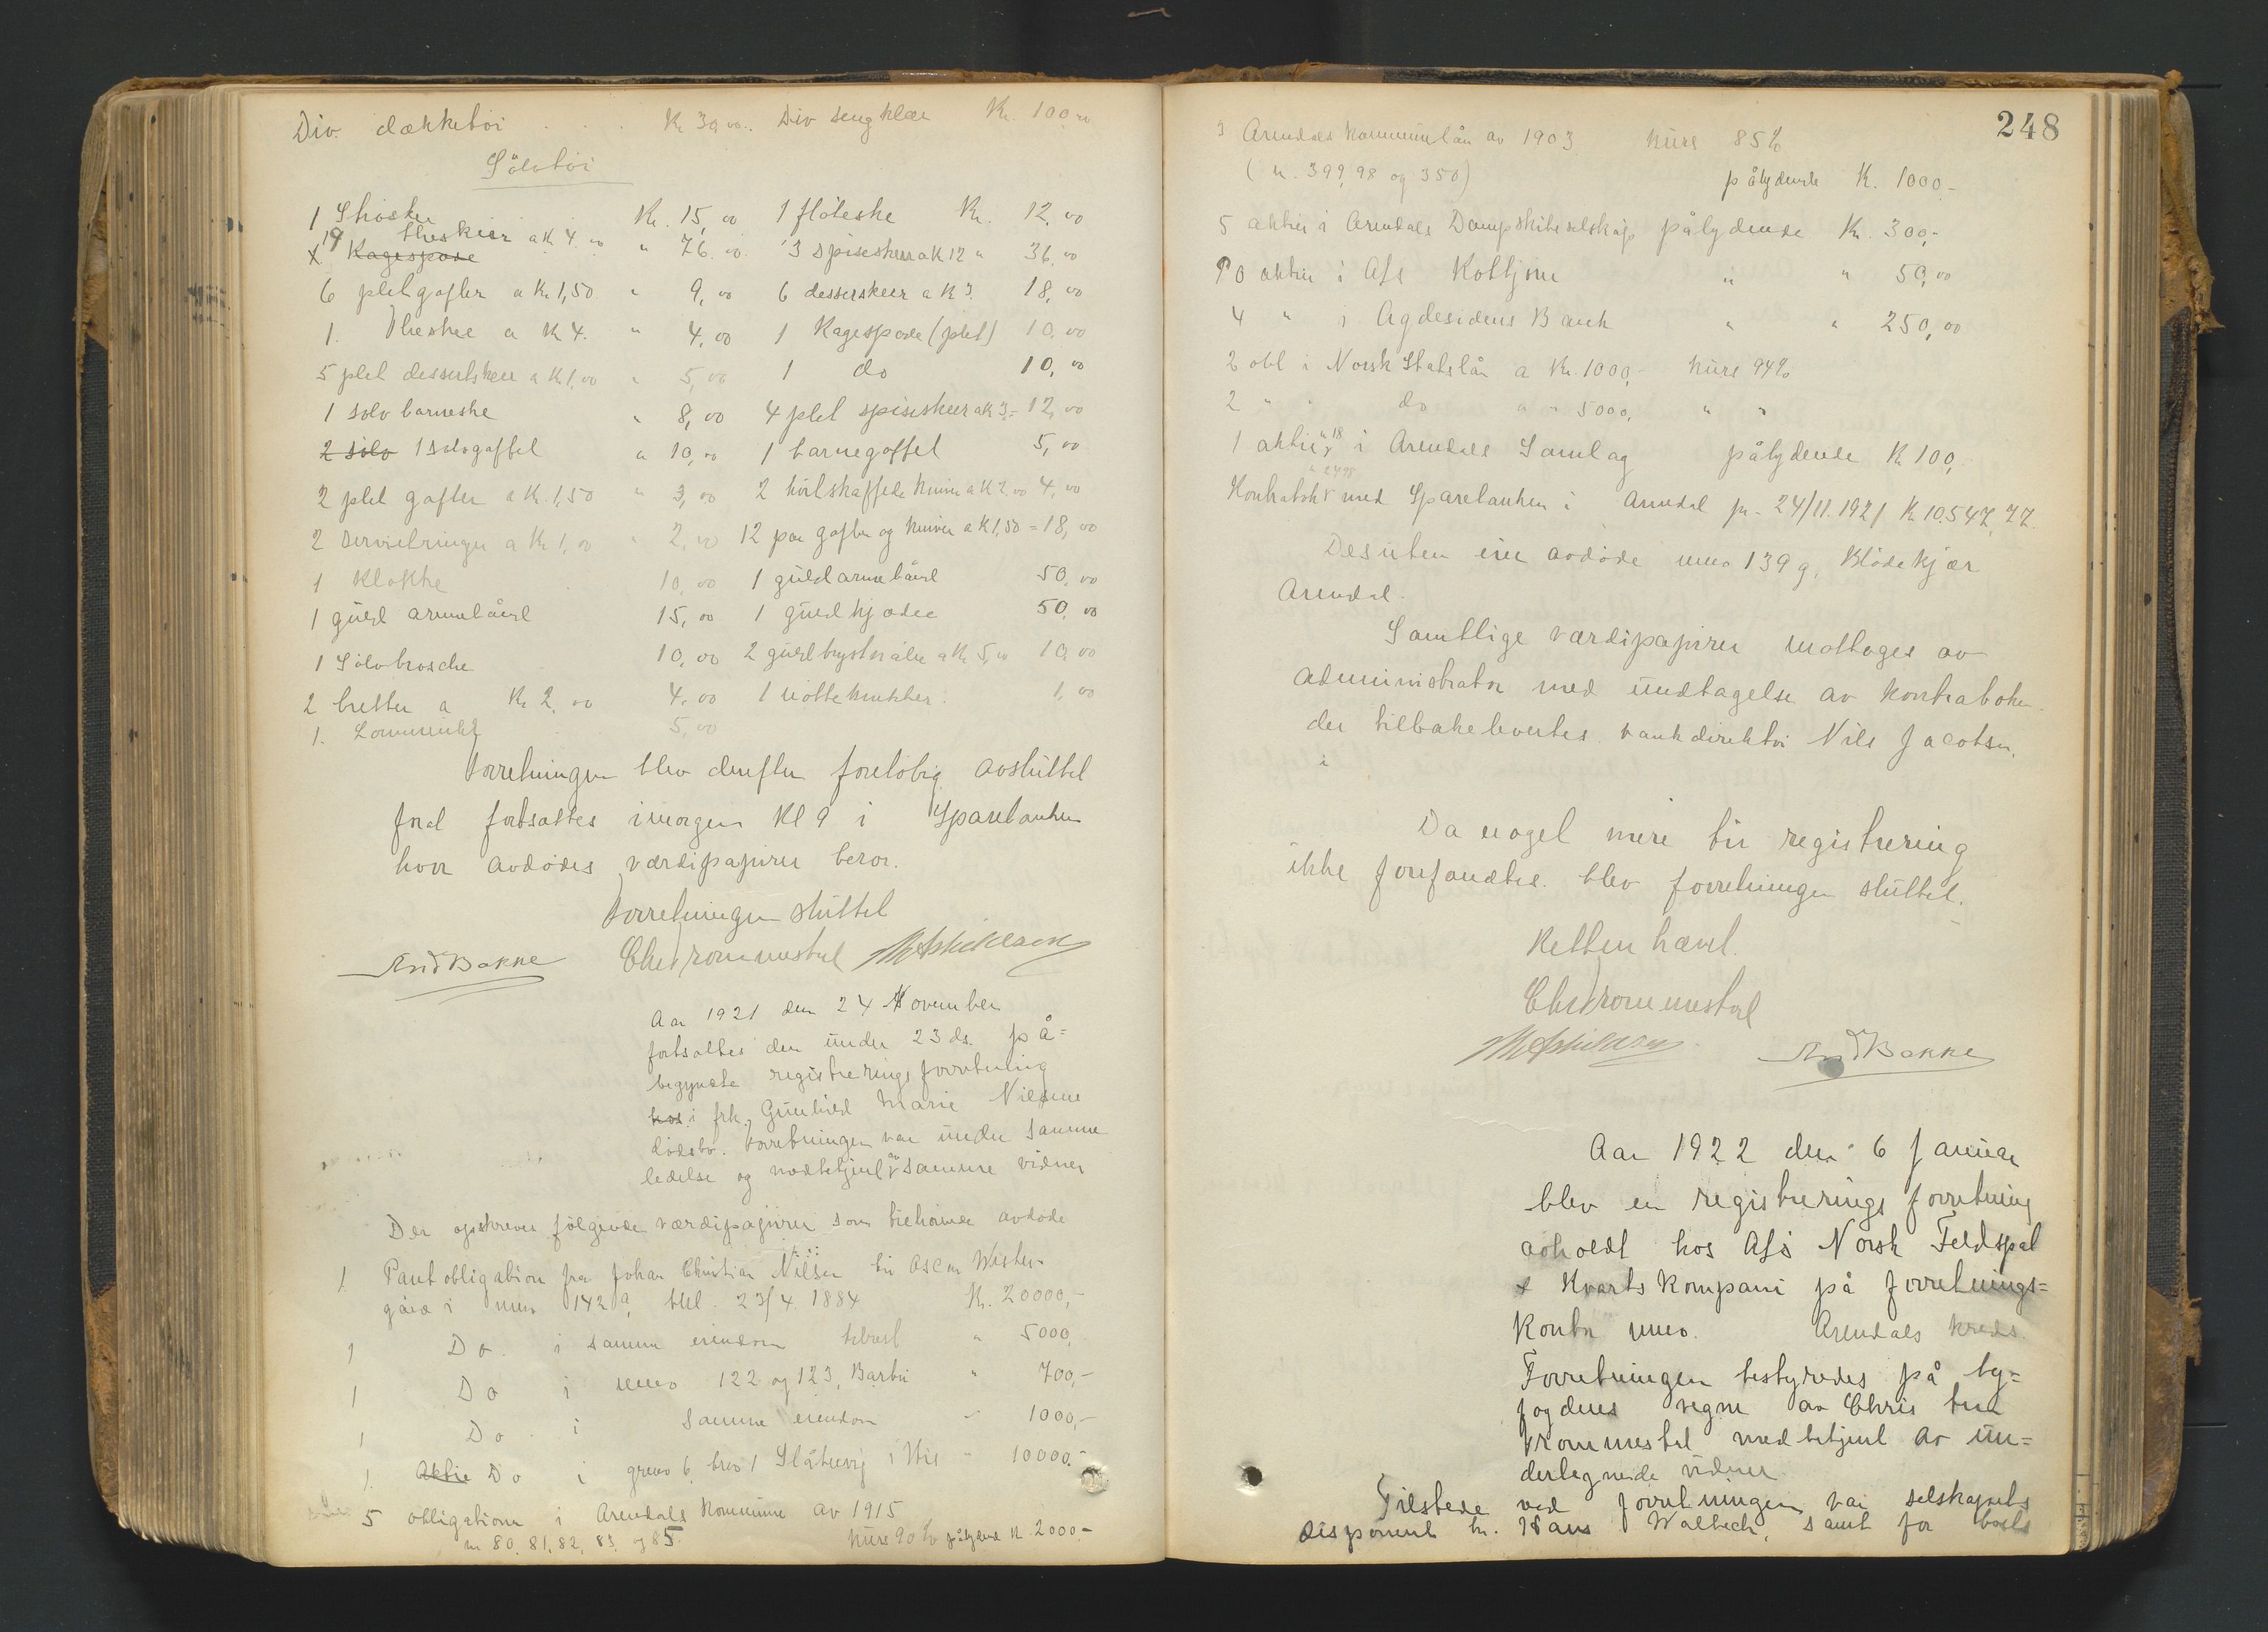 Div. dækketøi . . . Kr 30,00. Div sengklær Kr. 100,00
Sölvtöi
1 Kr. 15,00 1 flöteske Kr. 12,00
19 theskeer a K 4.00 " 76.00 3 spiseskeer a K 12 " 36,00
Kagespade
6 plet gafler a Kr 1,50 " 9,00 6 desserskeer a K 3. 18,00
1. Theske a K 4. " 4,00 1 Kagespade (plet) 10,00
5 plet dessertskeer a K 1,00 " 5,00 1 do 10,00
1 sölv barneske " 8,00 4 plet spiseskeer a K 3,- 12,00
2 sölv 1 sölvgaffel a 10,00 1 barnegaffel 5,00
2 plet gafler a K. 1,50 " 3,00 2 hvitskaftede kniver a K 2,00 4,00
2 servietringer a Kr 1,00 " 2,00 12 par gafler og kniver a K 1,50 = 18,00
1 Klokke 10,00 1 guldarmbånd 50,00
1 guld armbånd 15,00 1 guldkjæde 50,00
1 Sölvbrosche 10,00 2 guldbrystnåle a Kr 5,00 10,00
2 bretter a Kr 2,00 4,00 1 nötteknekker 1,00
1. 5,00
Forretningen blev derefter foreløbig avsluttet
for at fortsættes imorgen Kl 9 i Sparebanken
hvor avdødes værdipapirer beror.
Forretningen sluttet
And Bakke Chr Frommestad
Aar 1921 den 24 November
fortsattes den under 23 ds. på=
begyndte registreringsforretning
hos i frk. Gunhild Marie Nielsens
dödsbo. Forretningen var under samme
ledelse og medbetjent av samme vidner
Der opskreves følgende værdipapirer som tilhörende avdöde
1 Pantobligation fra Johan Christian Nilsen til Wester-
gård i mno 142 a, tbl. 23/4. 1884 Kr. 20000,-
1 Do. i samme eiendom " 5000,
1 Do i mno 122 og 123, Barbu " 700,-
1 Do. i samme eiendom " 1000,-
1. Aktie Do i gnrno 6 brno 1 i His - 10000.-
5 obligationer i Arendals Kommune av 1915
nr 80, 81, 82, 83, og 85. Kurs 90 % pålydende K 2000-
248
3 Arendals Kommunelån av 1903 Kurs 85%
(nr. 399, 98 og 350) pålydende K. 1000-
5 aktier i Arendals Dampskibsselskap pålydende Kr. 300,-
10 aktier i A/S " " 50,00
4 " i Agdesidens Bank " " 250,00
2 obl i Norsk Statslån a Kr. 1000,- Kurs 94%
2 " " do a " 5000, " "
1 aktie n 18 i Arendals Samlag pålydende K 100,
n 2495
Kontrabok med Sparebanken i Arendal pr. 24/11.1921 K 10.547,77.
Desuten eier avdøde mno 139 g, Blödekjær
Arendal.
Samtlige værdipapirer mottoges av
administrator med undtagelse av kontraboken
der tilbakelevertes bankdirektör Nils Jacobsen.
Da noget mere til registrering
ikke forefandtes blev forretningen sluttet.
Retten hævet.
Chr Frommestad
And Bakke
Aar 1922 den 6 Januar
blev en registrerings forretning
avholdt hos A/S Norsk Feldspat
& Kvarts Kompani på forretnings=
Kontor mno. Arendals kreds.
Forretningen bestyredes på by=
fogdens vegne av Christian
Frommestad medbetjent av un=
dertegnede vidner.
Tilstede ved forretningen var selskapets
disponent hr. Hans Walbech, samt for boets